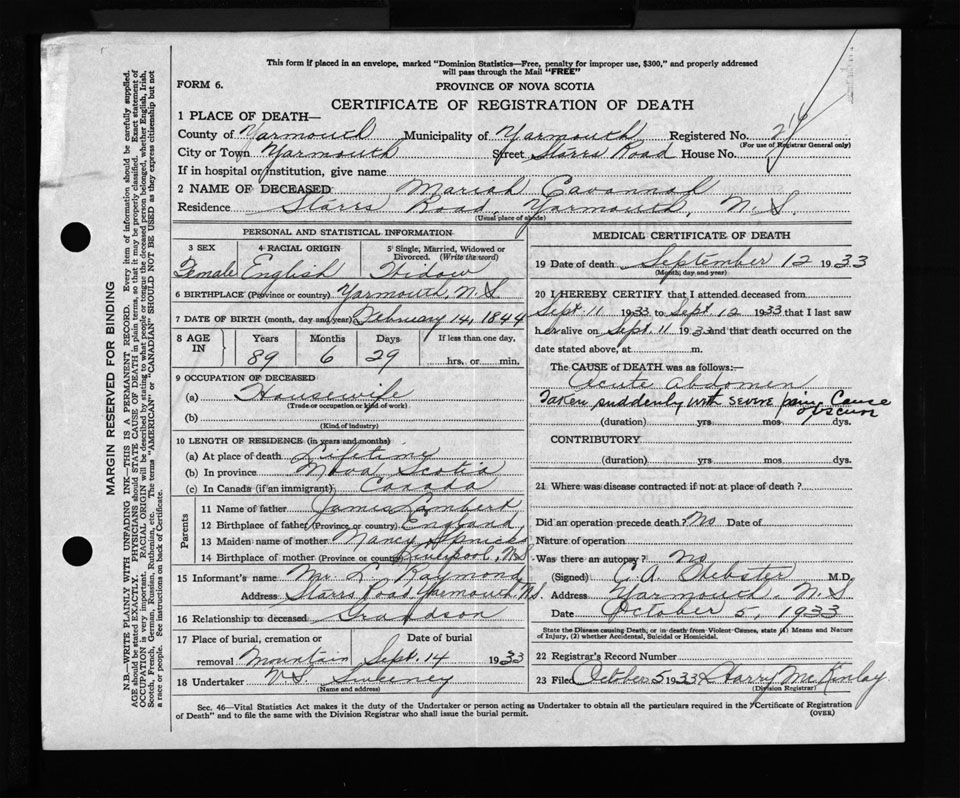 This form if placed in an envelope, marked "Dominion Statistics—Free, penalty for improper use, $300," and properly addressed
will pass through the Mail "FREE"
FORM 6.
PROVINCE OF NOVA SCOTIA
CERTIFICATE OF REGISTRATION OF DEATH
1 PLACE OF DEATH—
County of Yarmouth Municipality of Yarmouth Registered No.
(For use of Registrar General only)
City or Town Yarmouth Street Starrs Road House No.
If in hospital or institution, give name
2 NAME OF DECEASED Mariah Cavannah
Residence Starrs Road, Yarmouth, N.S.
(Usual place of abode)
PERSONAL AND STATISTICAL INFORMATION
3 SEX 4 RACIAL ORIGIN 5 Single, Married, Widowed or Divorced. (Write the word)
Female English Widow
6 BIRTHPLACE (Province or country) Yarmouth, N.S.
7 DATE OF BIRTH (month, day and year) February 14, 1844
8 AGE IN Years Months Days If less than one day,
89 6 29 hrs. or min.
9 OCCUPATION OF DECEASED
(a) Housewife
(Trade or occupation or kind of work)
(b)
(Kind of industry)
10 LENGTH OF RESIDENCE (in years and months)
(a) At place of death Lifetime
(b) In province Nova Scotia
(c) In Canada (if an immigrant) Canada
Parents
11 Name of father James Lambert
12 Birthplace of father (Province or country) England
13 Maiden name of mother Nancy
14 Birthplace of mother (Province or country) Liverpool, N.S.
15 Informant's name Mr. L. Raymond
Address Starrs Road, Yarmouth, N.S.
16 Relationship to deceased Grandson
17 Place of burial, cremation or removal Mountain
Date of burial Sept. 14 1933
18 Undertaker V S Sweeney
(Name and address)
MEDICAL CERTIFICATE OF DEATH
19 Date of death September 12 1933
(Month, day and year)
20 I HEREBY CERTIFY that I attended deceased from
Sept. 11 1933 to Sept 12 1933 that I last saw
her alive on Sept. 11 1933 and that death occurred on the
date stated above, at m.
The CAUSE of DEATH was as follows:—
Acute abdomen
Taken suddenly with severe pain, Cause
obscure
(duration) yrs. mos. dys.
CONTRIBUTORY
(duration) yrs. mos. dys.
21 Where was disease contracted if not at place of death?
Did an operation precede death? No Date of
Nature of operation
Was there an autopsy? No
(Signed) C. A. Webster M.D.
Address Yarmouth, N.S.
Date October 5, 1933
State the Disease causing Death, or in death from Violent Causes, state (1) Means and Nature
of Injury, (2) whether Accidental, Suicidal or Homicidal.
22 Registrar's Record Number
23 Filed October 5 1933 Harry McKinlay
(Division Registrar)
Sec. 46—Vital Statistics Act makes it the duty of the Undertaker or person acting as Undertaker to obtain all the particulars required in the "Certificate of Registration
of Death" and to file the same with the Division Registrar who shall issue the burial permit.
(OVER)
MARGIN RESERVED FOR BINDING
N.B.—WRITE PLAINLY WITH UNFADING INK—THIS IS A PERMANENT RECORD. Every item of information should be carefully supplied.
AGE should be stated EXACTLY. PHYSICIANS should STATE CAUSE OF DEATH in plain terms, so that it may be properly classified. Exact statement of
OCCUPATION is very important. RACIAL ORIGIN will be described by stating to what people or tongue the deceased person belonged, whether English, Irish,
Scotch, French, German, Russian, Ruthenian, etc. The terms "AMERICAN" or "CANADIAN" SHOULD NOT BE USED as they express citizenship but not
a race or people. See instructions on back of Certificate.